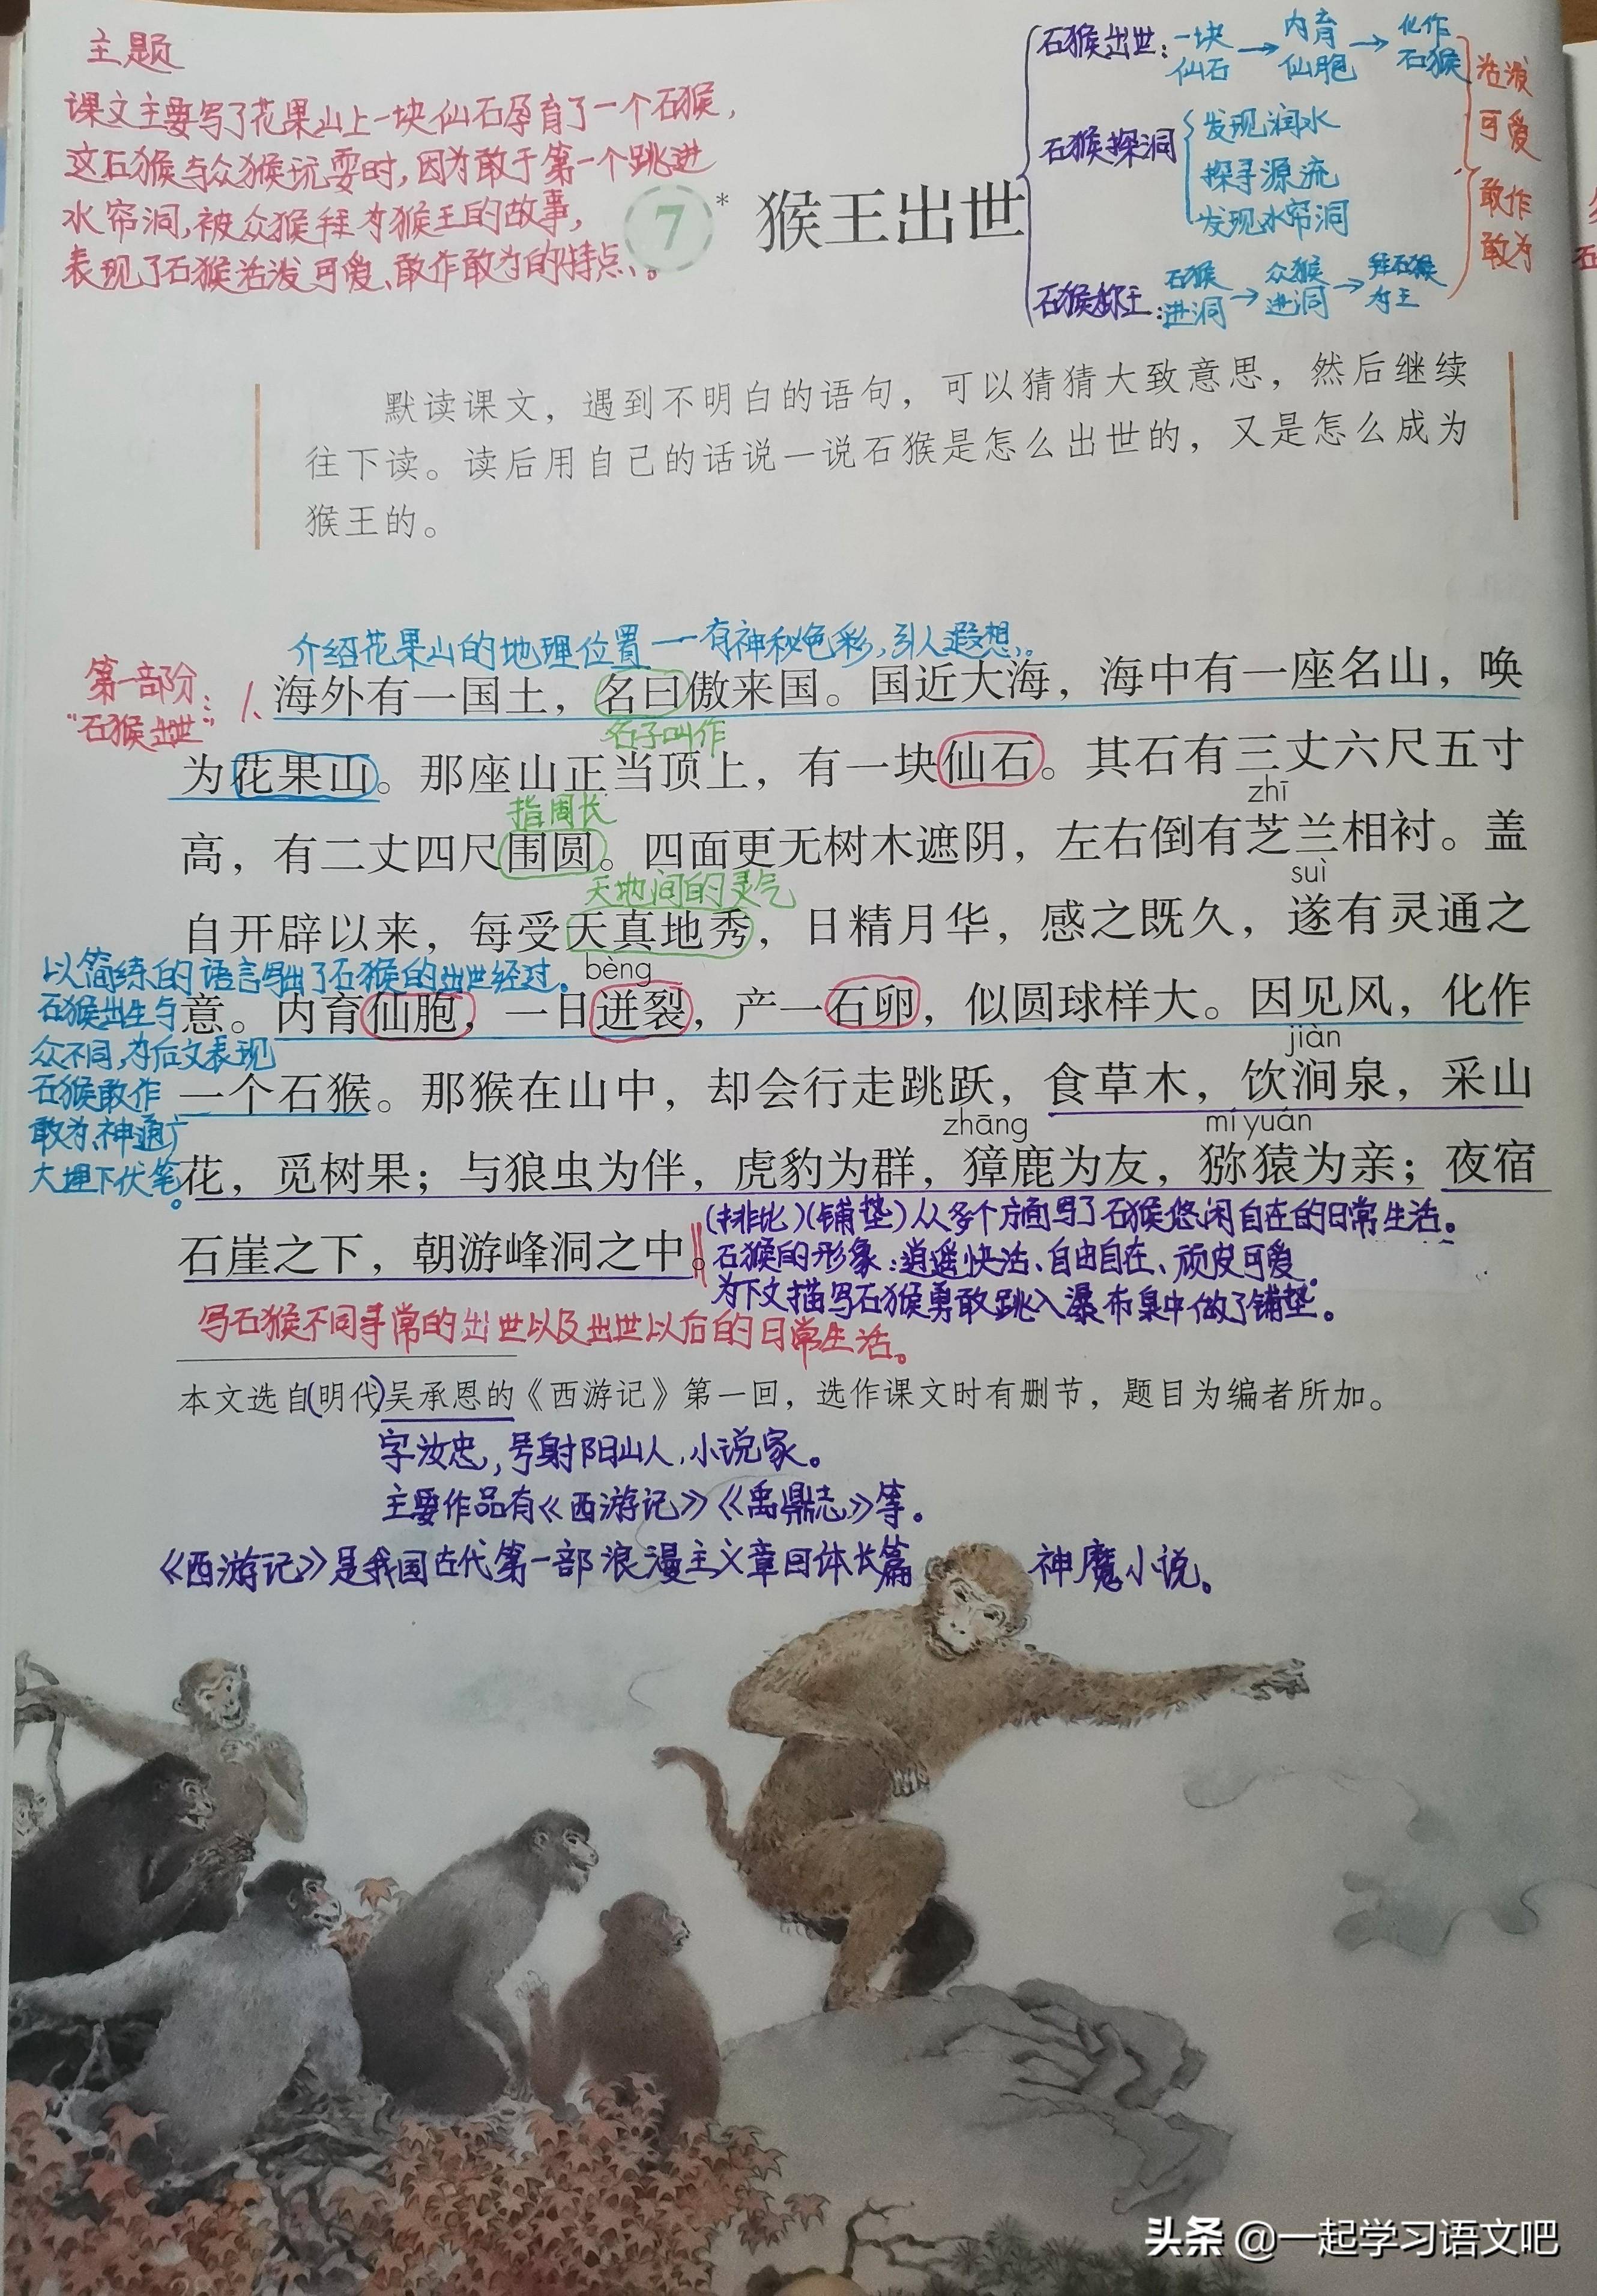 主题
课文主要写了花果山上一块仙石孕育了一个石猴，
这石猴与众猴玩耍时，因为敢于第一个跳进
水帘洞，被众猴拜为猴王的故事，
表现了石猴活泼可爱、敢作敢为的特点。
7* 猴王出世
石猴出世：一块仙石→内育仙胞→化作石猴
石猴探洞
发现涧水
探寻源流
发现水帘洞
石猴称王：石猴进洞→众猴进洞→拜石猴为王
活泼
可爱
敢作
敢为
默读课文，遇到不明白的语句，可以猜猜大致意思，然后继续
往下读。读后用自己的话说一说石猴是怎么出世的，又是怎么成为
猴王的。
介绍花果山的地理位置——有神秘色彩，引人遐想。
第一部分：
“石猴出世”
1、海外有一国土，名曰傲来国。国近大海，海中有一座名山，唤
名子叫作
为花果山。那座山正当顶上，有一块仙石。其石有三丈六尺五寸
指周长
zhī
高，有二丈四尺围圆。四面更无树木遮阴，左右倒有芝兰相衬。盖
天地间的灵气
suì
自开辟以来，每受天真地秀，日精月华，感之既久，遂有灵通之
bèng
意。内育仙胞，一日迸裂，产一石卵，似圆球样大。因见风，化作
jiàn
一个石猴。那猴在山中，却会行走跳跃，食草木，饮涧泉，采山
zhāng
mí yuán
花，觅树果；与狼虫为伴，虎豹为群，獐鹿为友，猕猿为亲；夜宿
石崖之下，朝游峰洞之中。
以简练的语言写出了石猴的出世经过。
石猴出生与
众不同，为后文表现
石猴敢作
敢为、神通广
大埋下伏笔。
（排比）（铺垫）从多个方面写了石猴悠闲自在的日常生活。
石猴的形象：逍遥快活、自由自在、顽皮可爱。
为下文描写石猴勇敢跳入瀑布泉中做了铺垫。
写石猴不同寻常的出世以及出世以后的日常生活。
本文选自(明代)吴承恩的《西游记》第一回，选作课文时有删节，题目为编者所加。
字汝忠，号射阳山人，小说家。
主要作品有《西游记》《禹鼎志》等。
《西游记》是我国古代第一部浪漫主义章回体长篇神魔小说。
头条 @一起学习语文吧